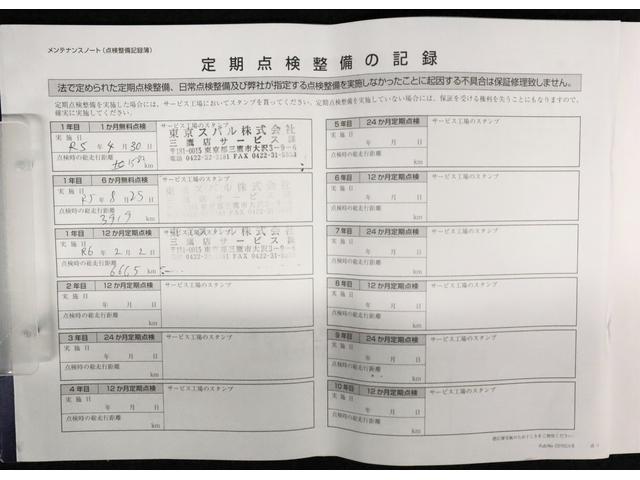 メンテナンスノート（点検整備記録簿）
定期点検整備の記録
法で定められた定期点検整備、日常点検整備及び弊社が指定する点検整備を実施しなかったことに起因する不具合は保証修理致しません。
定期点検整備を実施した場合には、サービス工場においてスタンプを貰ってください。定期点検整備を実施していない場合には、保証を受ける権利を失うことにもなりますので、
確実に実施してください。
1年目 1か月無料点検 サービス工場のスタンプ
実施日
R5年4月30日
点検時の総走行距離
km
東京スバル株式会社
三鷹店サービス課
〒181-0015 東京都三鷹市大沢3-9-6
電話 0422-32-3181 FAX 0422-31-5553
1年目 6か月無料点検 サービス工場のスタンプ
実施日
R5年8月25日
点検時の総走行距離
3919 km
東京スバル株式会社
三鷹店サービス課
1年目 12か月定期点検 サービス工場のスタンプ
実施日
R6年2月2日
点検時の総走行距離
6665 km
東京スバル株式会社
三鷹店サービス課
〒181-0015 東京都三鷹市大沢3-9-6
2年目 12か月定期点検 サービス工場のスタンプ
実施日
年 月 日
点検時の総走行距離
km
3年目 24か月定期点検 サービス工場のスタンプ
実施日
年 月 日
点検時の総走行距離
km
4年目 12か月定期点検 サービス工場のスタンプ
実施日
年 月 日
点検時の総走行距離
km
5年目 24か月定期点検 サービス工場のスタンプ
実施日
年 月 日
点検時の総走行距離
km
6年目 12か月定期点検 サービス工場のスタンプ
実施日
年 月 日
点検時の総走行距離
km
7年目 24か月定期点検 サービス工場のスタンプ
実施日
年 月 日
点検時の総走行距離
km
8年目 12か月定期点検 サービス工場のスタンプ
実施日
年 月 日
点検時の総走行距離
km
9年目 24か月定期点検 サービス工場のスタンプ
実施日
年 月 日
点検時の総走行距離
km
10年目 12か月定期点検 サービス工場のスタンプ
実施日
年 月 日
点検時の総走行距離
km